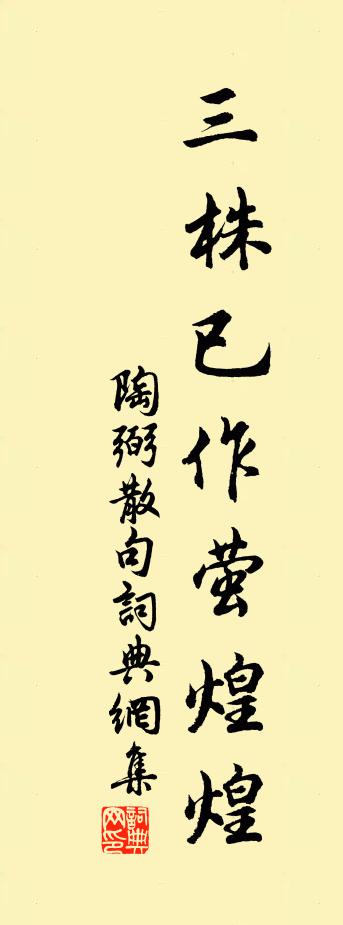 三株已作萤煌煌
陶弼散句詞典網集
詞典網印